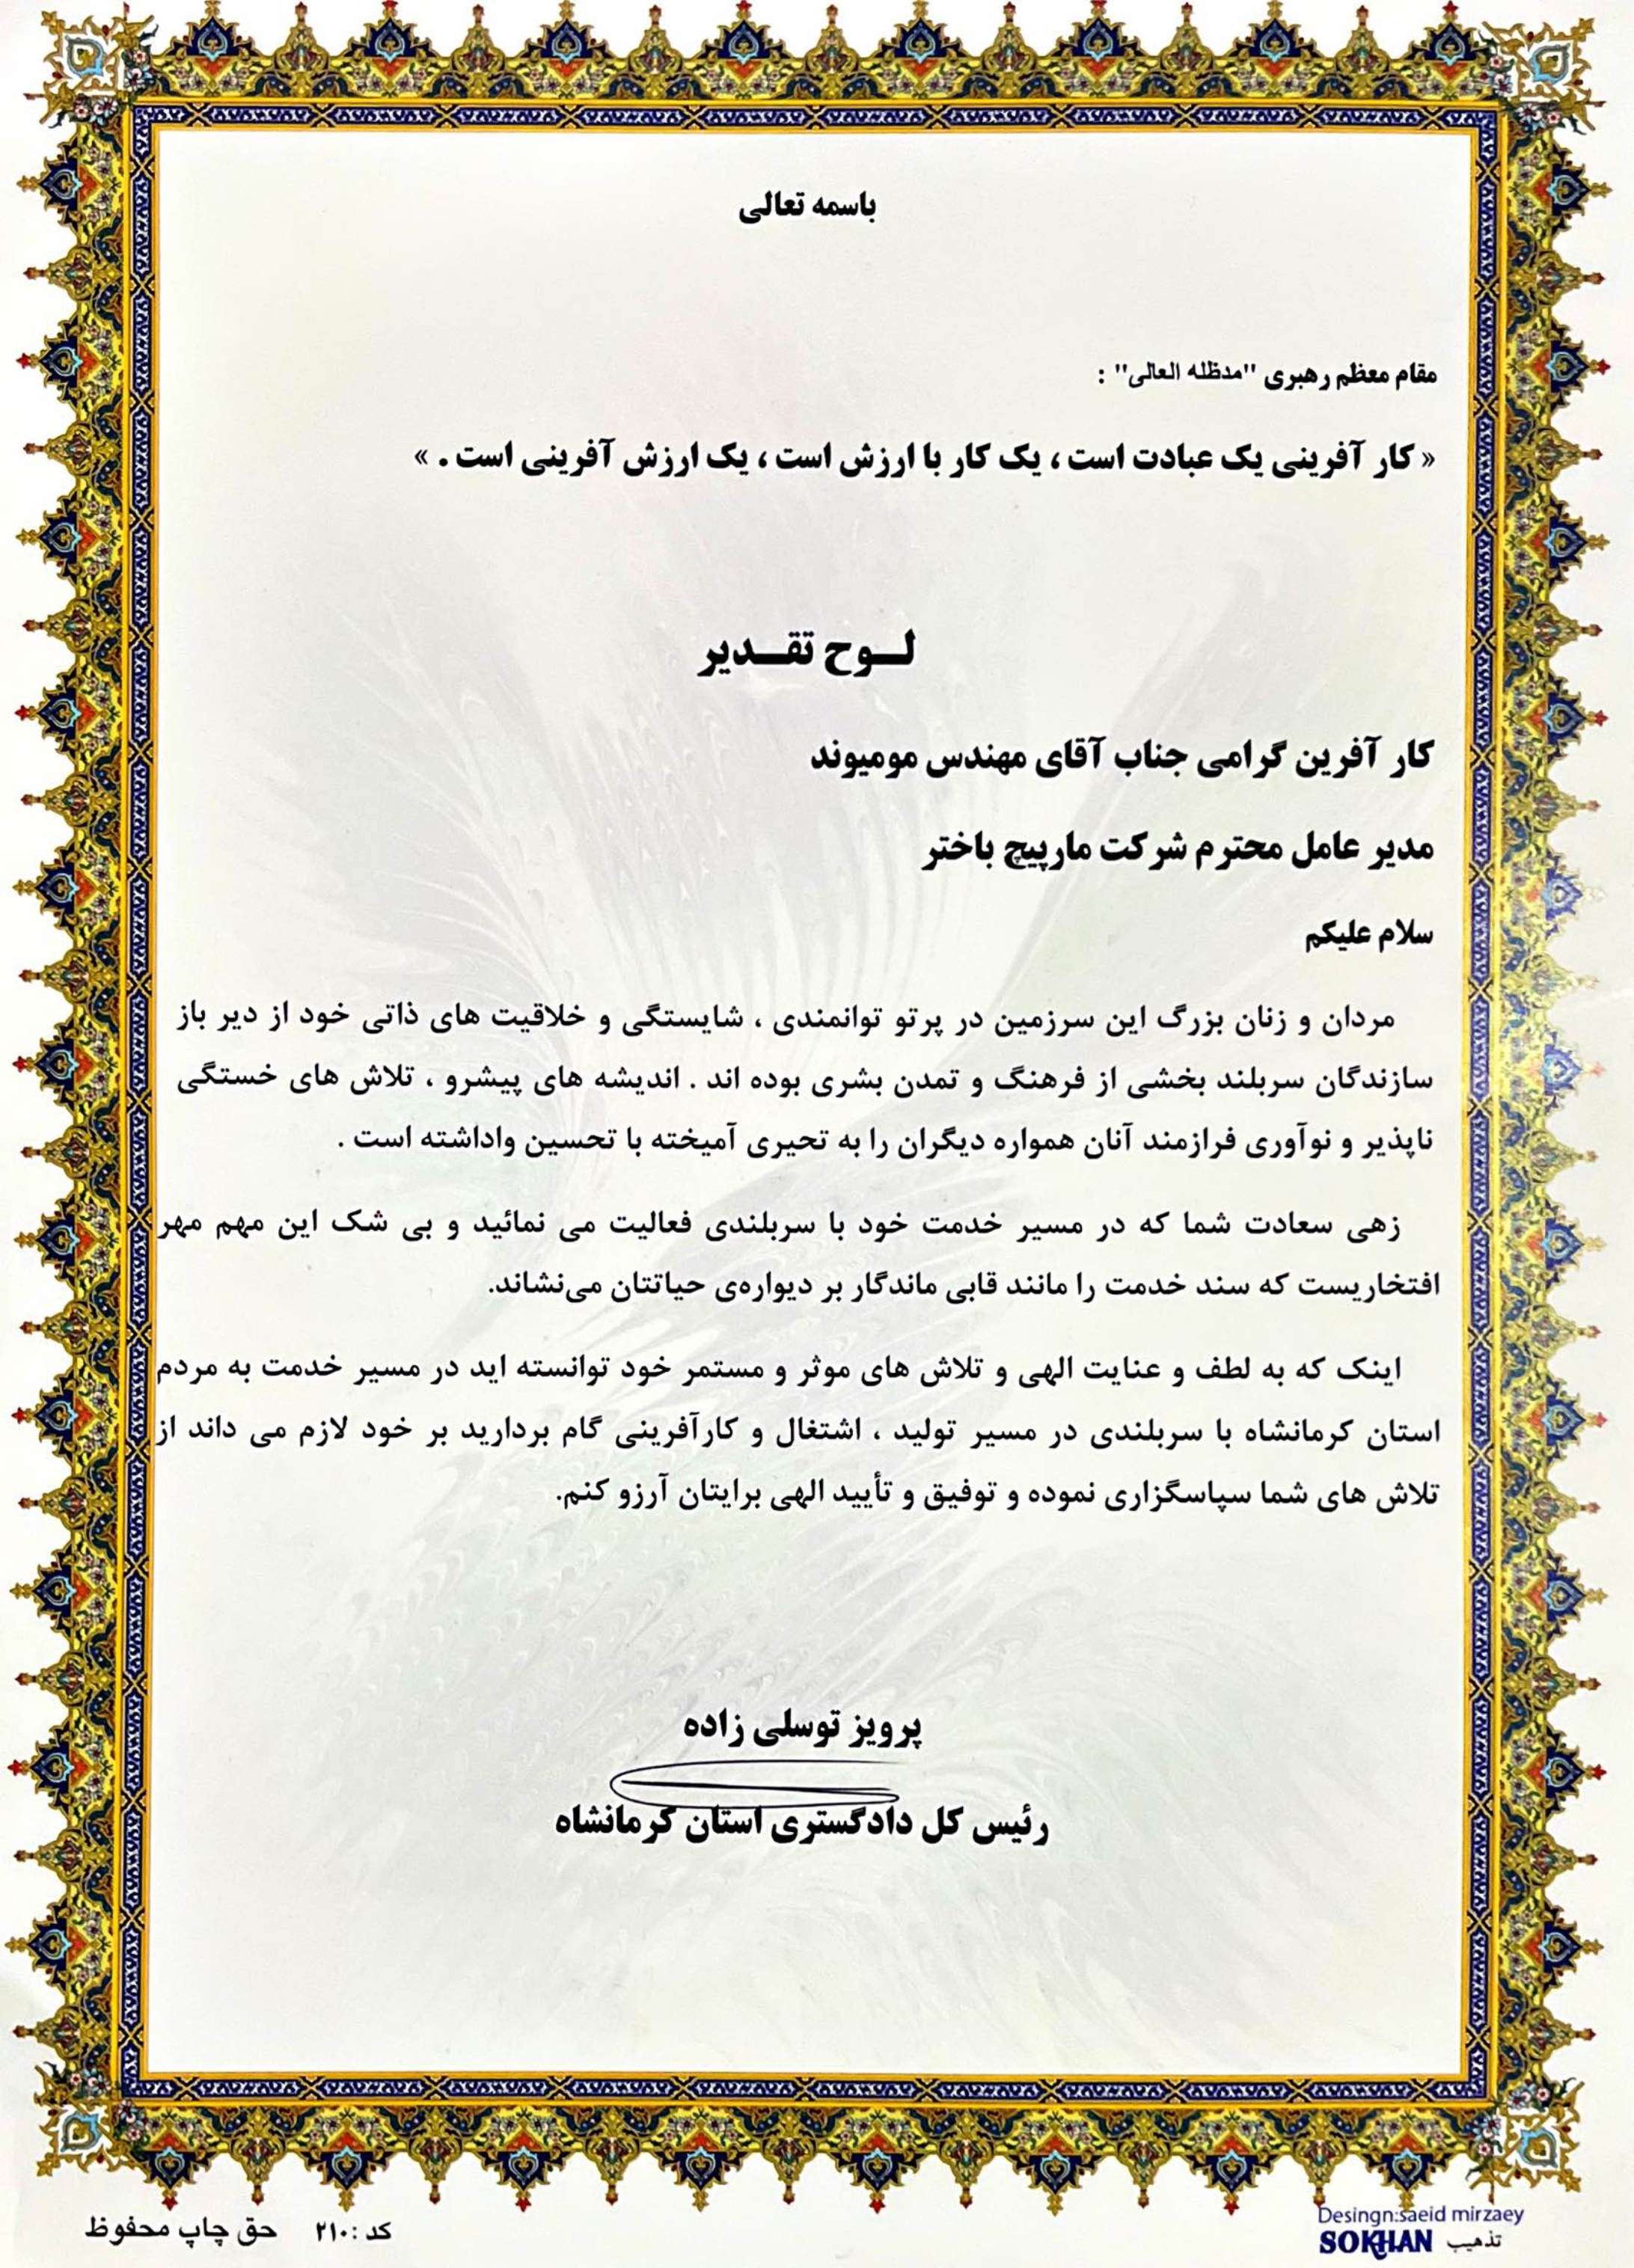 باسمه تعالی
مقام معظم رهبری "مدظله العالی" :
« کار آفرینی یک عبادت است ، یک کار با ارزش است ، یک ارزش آفرینی است . »
لـــوح تقـــدیر
کار آفرین گرامی جناب آقای مهندس مومیوند
مدیر عامل محترم شرکت مارپیچ باختر
سلام علیکم
مردان و زنان بزرگ این سرزمین در پرتو توانمندی ، شایستگی و خلاقیت های ذاتی خود از دیر باز
سازندگان سربلند بخشی از فرهنگ و تمدن بشری بوده اند . اندیشه های پیشرو ، تلاش های خستگی
ناپذیر و نوآوری فرازمند آنان همواره دیگران را به تحیری آمیخته با تحسین واداشته است .
زهی سعادت شما که در مسیر خدمت خود با سربلندی فعالیت می نمائید و بی شک این مهم مهر
افتخاریست که سند خدمت را مانند قابی ماندگار بر دیواره‌ی حیاتتان می‌نشاند.
اینک که به لطف و عنایت الهی و تلاش های موثر و مستمر خود توانسته اید در مسیر خدمت به مردم
استان کرمانشاه با سربلندی در مسیر تولید ، اشتغال و کارآفرینی گام بردارید بر خود لازم می داند از
تلاش های شما سپاسگزاری نموده و توفیق و تأیید الهی برایتان آرزو کنم.
پرویز توسلی زاده
رئیس کل دادگستری استان کرمانشاه
Desingn:saeid mirzaey
تذهیب SOKHAN
کد :۲۱۰ حق چاپ محفوظ